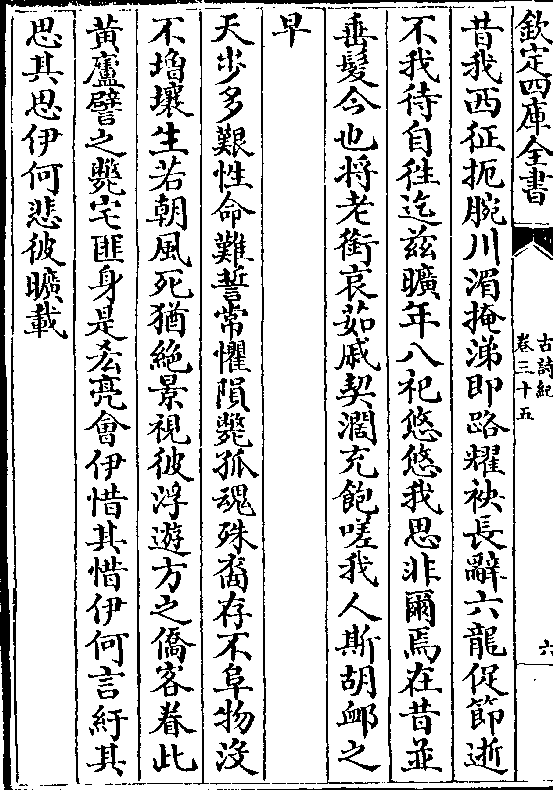 欽定四庫全書
古詩紀
卷三十五
六
昔我西征扼腕川湄掩涕即路耀袂長辭六龍促節逝
不我待自徃迄兹曠年八祀悠悠我思非爾焉在昔並
垂髮今也將老銜哀茹戚契濶充飽嗟我人斯胡䘏之
早
天歩多艱性命難誓常懼隕斃孤魂殊裔存不阜物沒
不増壤生若朝風死猶絶景視彼浮遊方之僑客眷此
黄廬譬之斃宅匪身是𠫤亮會伊惜其惜伊何言紆其
思其思伊何悲彼曠載